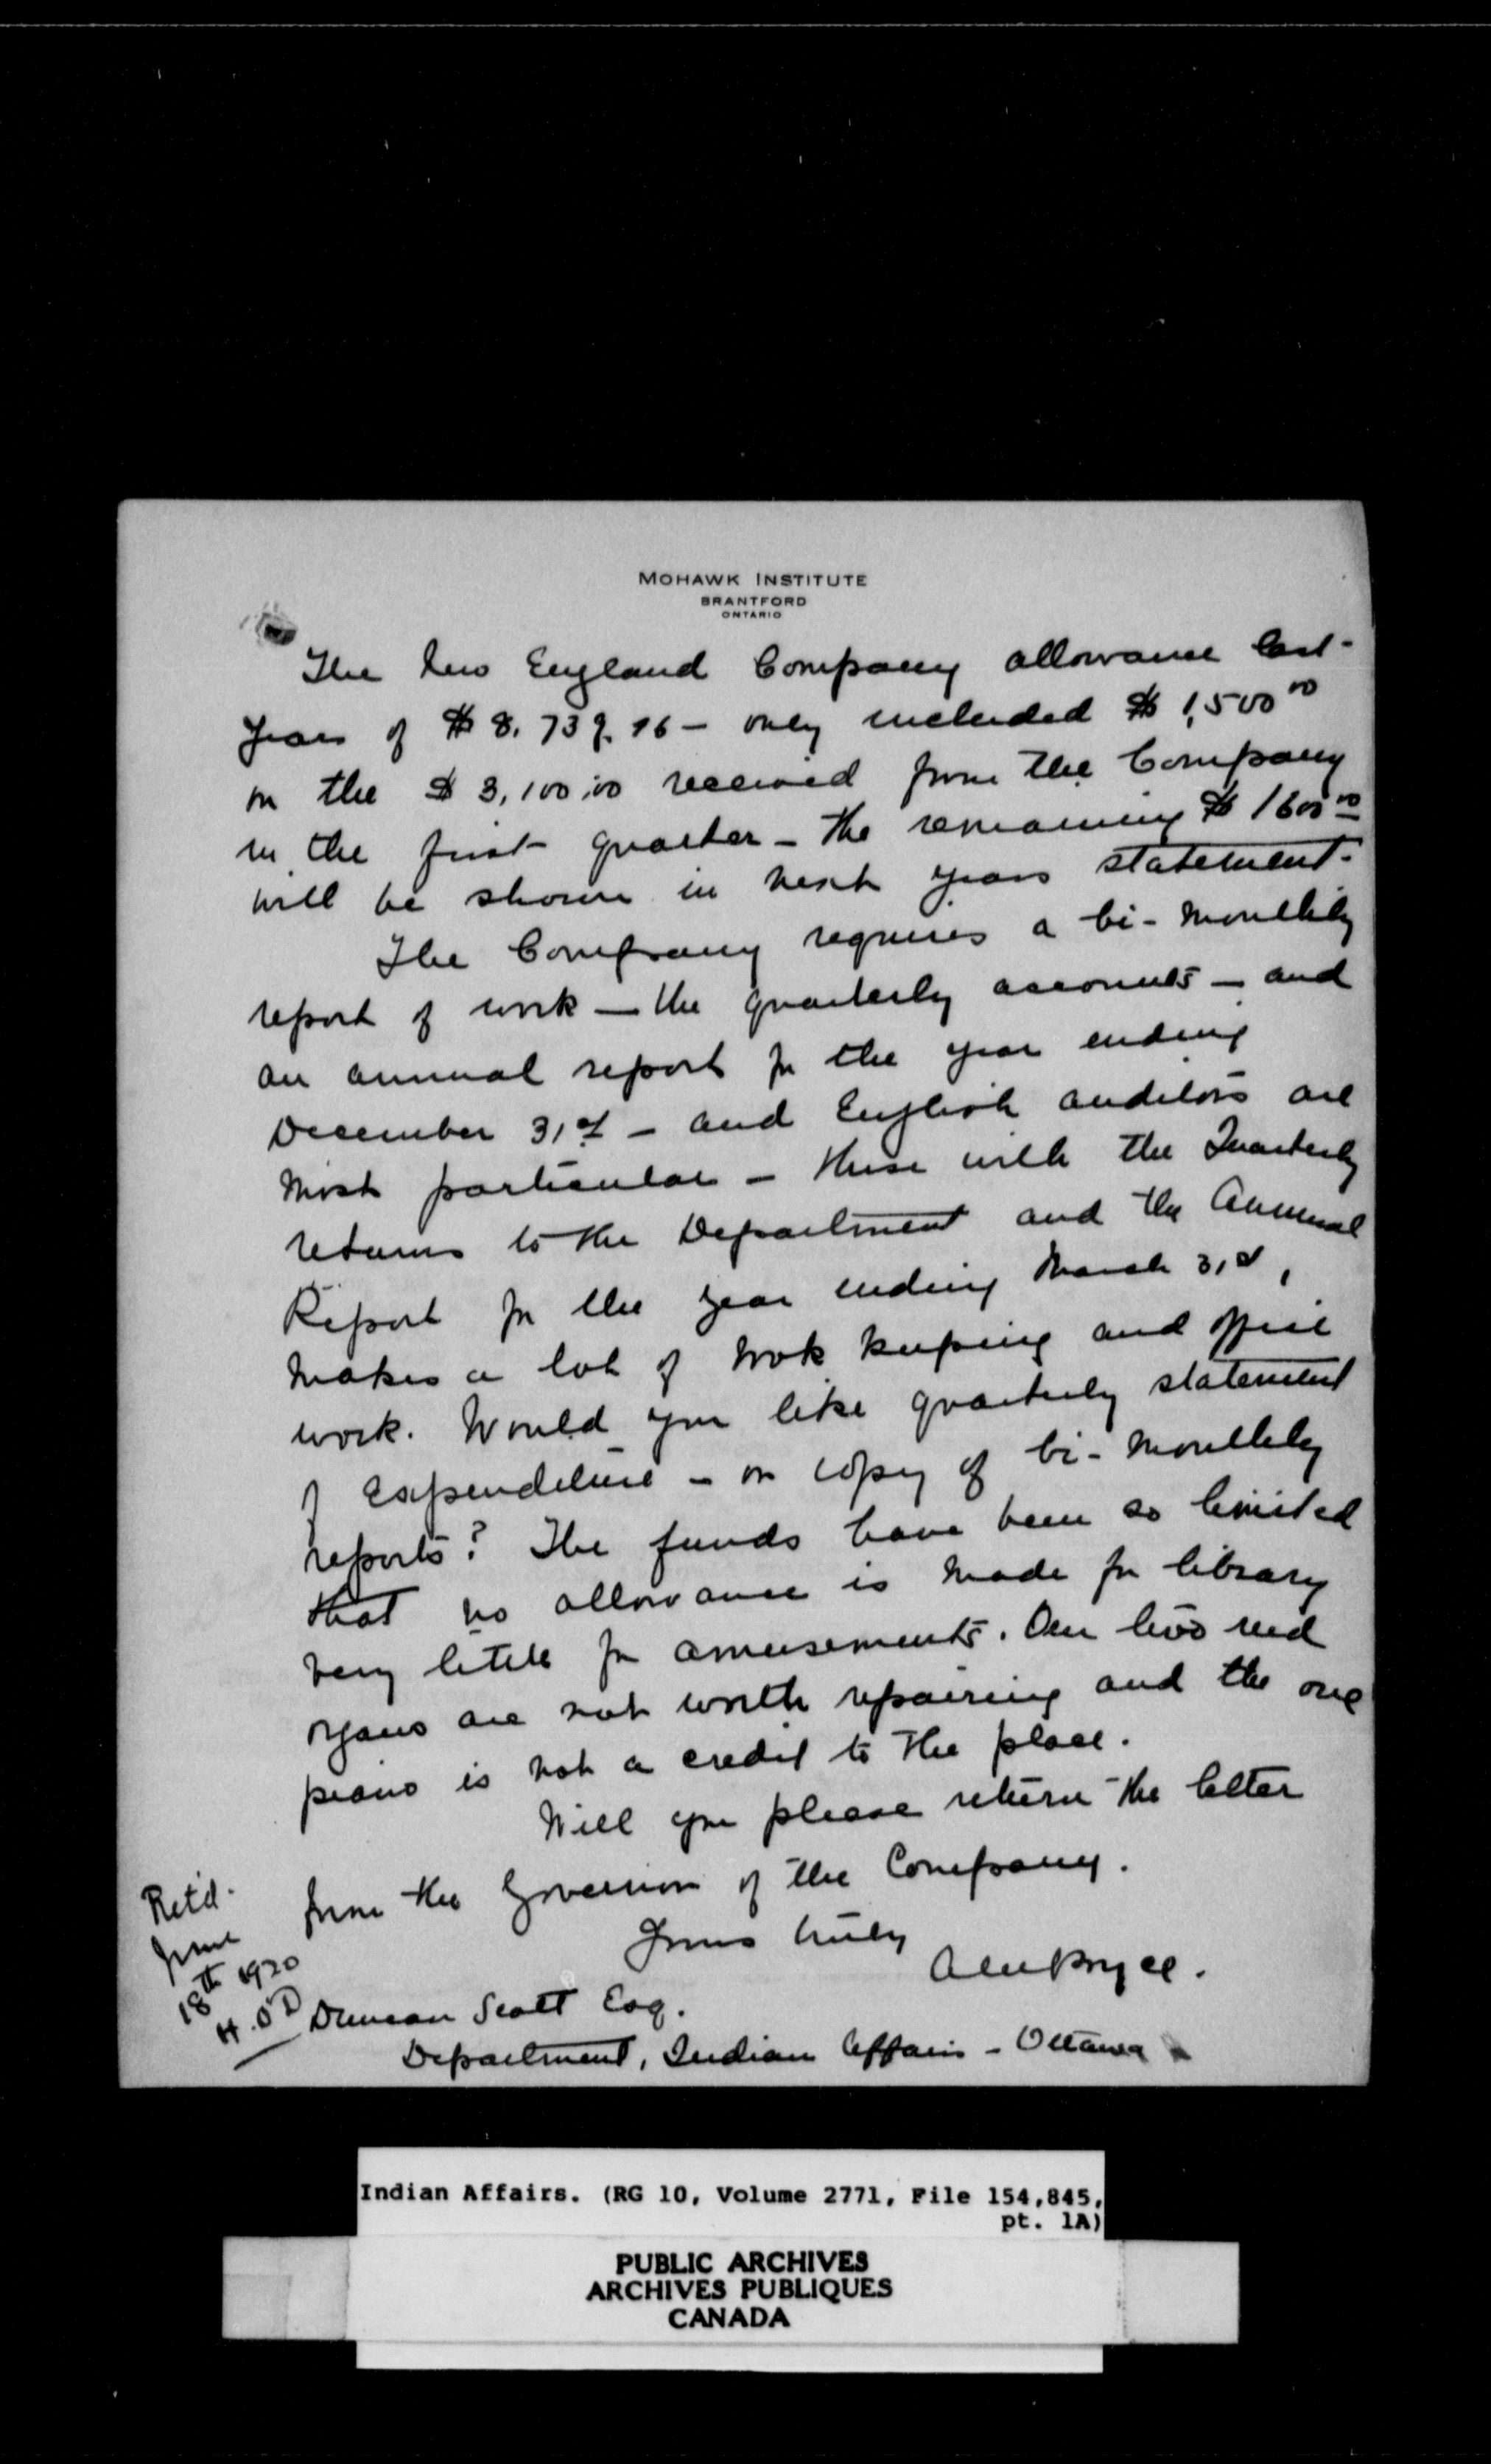 MOHAWK INSTITUTE
BRANTFORD
ONTARIO
The New England Company allowance last
years of $ 8,739.16 — only included $ 1,500 00
on the $ 3,100.00 received from the Company
in the first quarter — the remaining $ 1600 00
will be shown in next years statement.
The Company requires a bi-monthly
report of work — the quarterly accounts — and
an annual report for the year ending
December 31st — and English auditors are
most particular — these with the Quarterly
returns to the Department and the Annual
Report for the year ending March 31st,
makes a lot of book keeping and office
work. Would you like quarterly statement
of expenditure — or copy of bi-monthly
reports? The funds have been so limited
that no allowance is made for library
very little for amusements. Our two reed
organs are not worth repairing and the one
piano is not a credit to the place.
Will you please return the letter
from the Governor of the Company.
Yours truly
Retd.
June
18th 1920
Duncan Scott Esq.
Department, Indian Affairs — Ottawa
Indian Affairs. (RG 10, Volume 2771, File 154,845,
pt. 1A)
PUBLIC ARCHIVES
ARCHIVES PUBLIQUES
CANADA